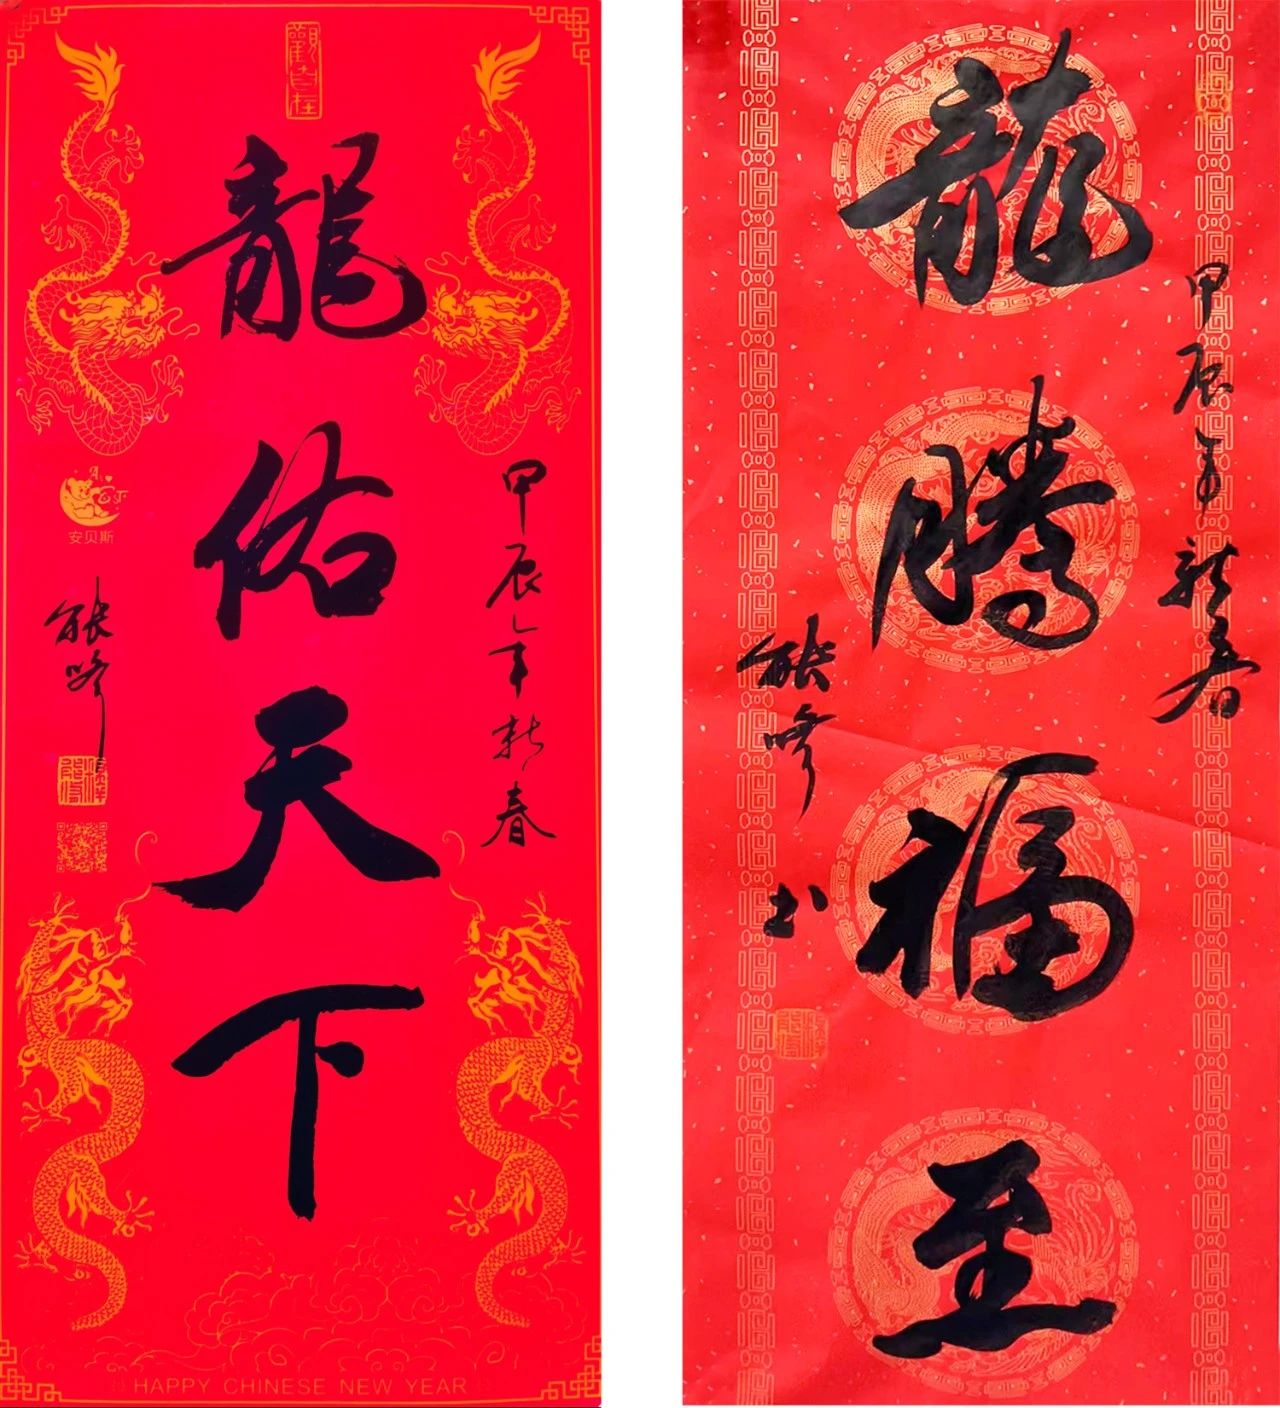 龍佑天下
甲辰年新春
安贝斯
HAPPY CHINESE NEW YEAR
龍騰福至
甲辰年新春
书